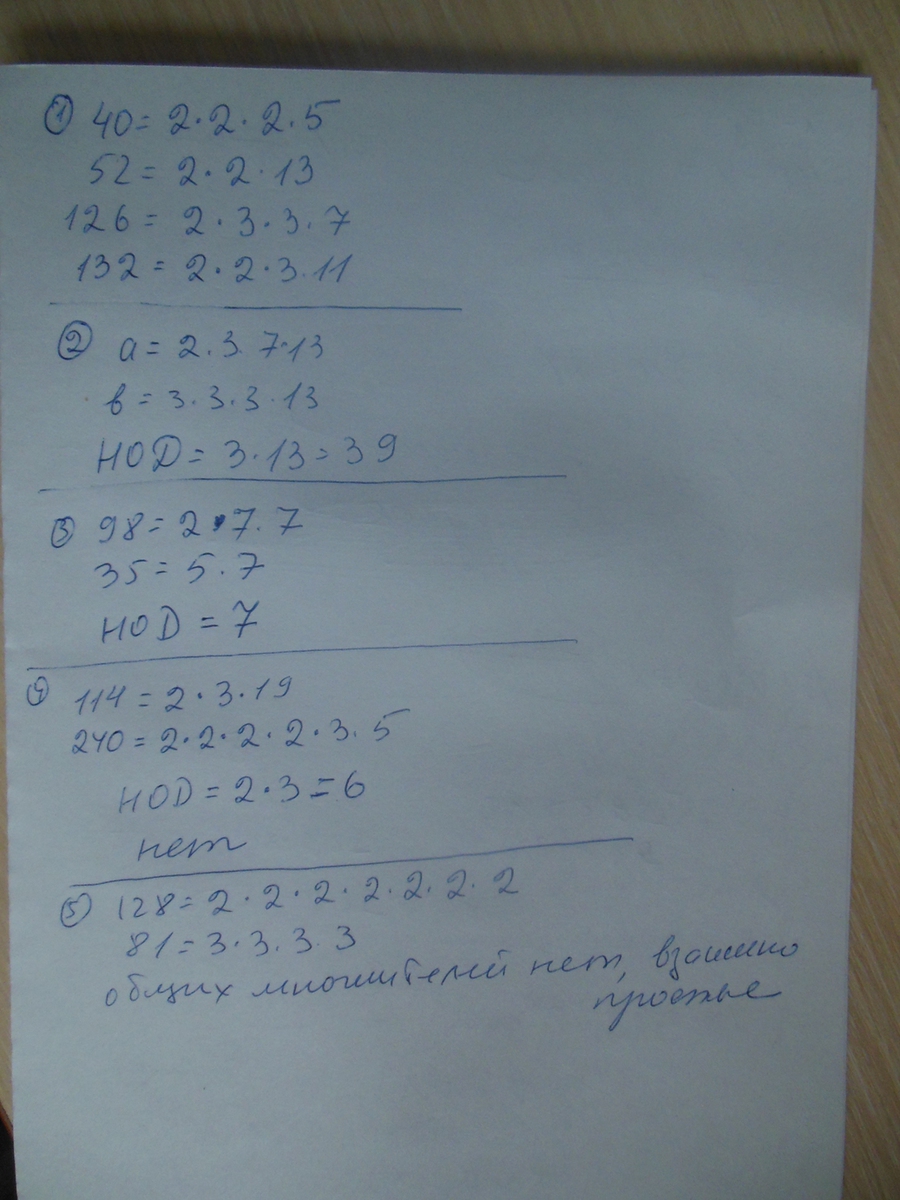 ① 40 = 2·2·2·5
52 = 2·2·13
126 = 2·3·3·7
132 = 2·2·3·11
② a = 2·3·7·13
в = 3·3·3·13
НОD = 3·13 = 39
③ 98 = 2·7·7
35 = 5·7
НОD = 7
④ 114 = 2·3·19
240 = 2·2·2·2·3·5
НОD = 2·3 = 6
нет
⑤ 128 = 2·2·2·2·2·2·2
81 = 3·3·3·3
общих множителей нет, взаимно
простые